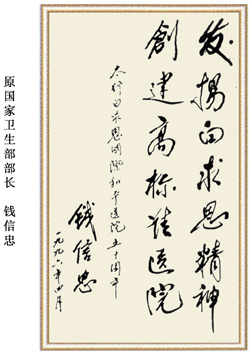 发揚白求恩精神
創建高标准医院
太行白求恩国际和平医院五十周年
钱信忠
一九九六年四月
原国家卫生部部长 钱信忠